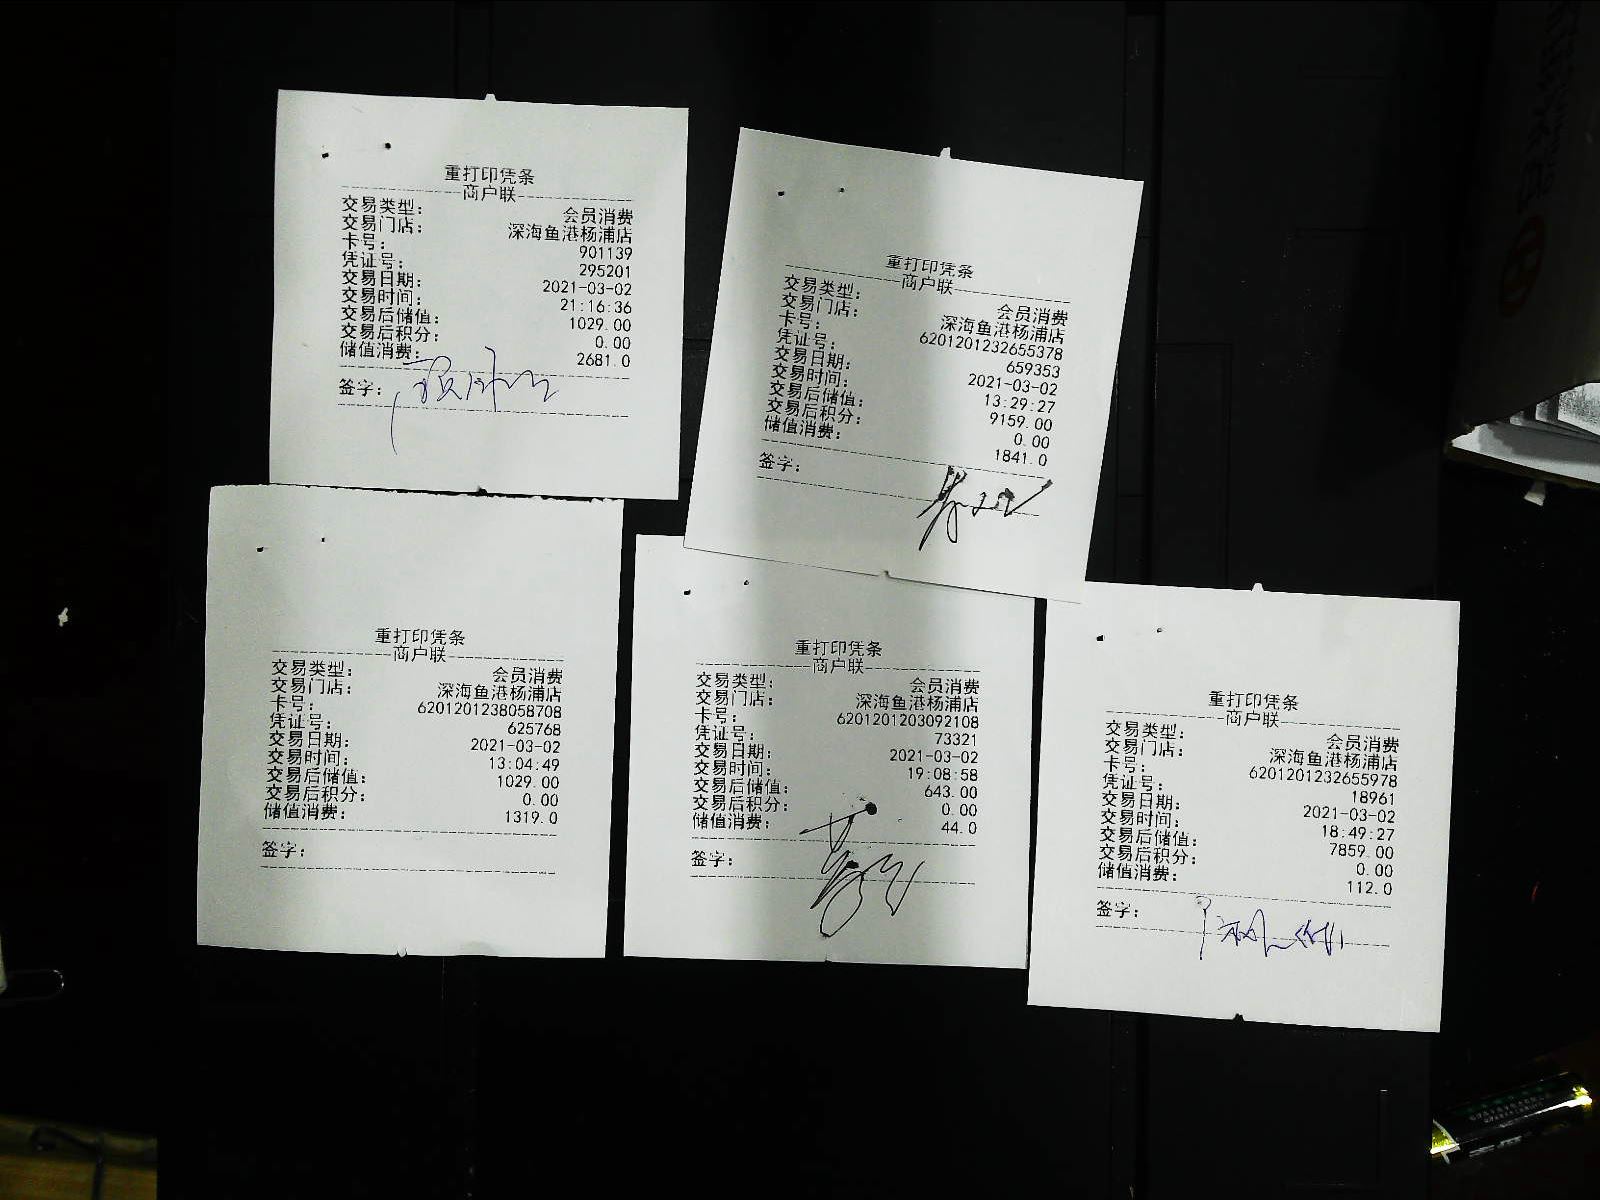 重打印凭条
商户联
交易类型： 会员消费
交易门店： 深海鱼港杨浦店
卡号： 901139
凭证号： 295201
交易日期： 2021-03-02
交易时间： 21:16:36
交易后储值： 1029.00
交易后积分： 0.00
储值消费： 2681.0
签字：
重打印凭条
商户联
交易类型： 会员消费
交易门店： 深海鱼港杨浦店
卡号： 6201201232655378
凭证号： 659353
交易日期： 2021-03-02
交易时间： 13:29:27
交易后储值： 9159.00
交易后积分： 0.00
储值消费： 1841.0
签字：
重打印凭条
商户联
交易类型： 会员消费
交易门店： 深海鱼港杨浦店
卡号： 6201201238058708
凭证号： 625768
交易日期： 2021-03-02
交易时间： 13:04:49
交易后储值： 1029.00
交易后积分： 0.00
储值消费： 1319.0
签字：
重打印凭条
商户联
交易类型： 会员消费
交易门店： 深海鱼港杨浦店
卡号： 6201201203092108
凭证号： 73321
交易日期： 2021-03-02
交易时间： 19:08:58
交易后储值： 643.00
交易后积分： 0.00
储值消费： 44.0
签字：
重打印凭条
商户联
交易类型： 会员消费
交易门店： 深海鱼港杨浦店
卡号： 6201201232655978
凭证号： 18961
交易日期： 2021-03-02
交易时间： 18:49:27
交易后储值： 7859.00
交易后积分： 0.00
储值消费： 112.0
签字：